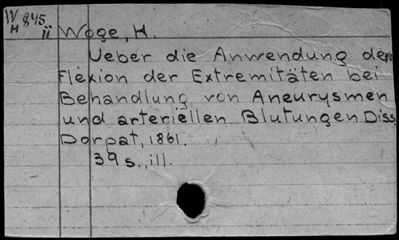 W 845 Woge, H.
H ü
Ueber die Anwendung der
Flexion der Extremitäten bei
Behandlung von Aneurysmen
und arteriellen Blutungen Diss
Dorpat, 1861.
39 s., ill.